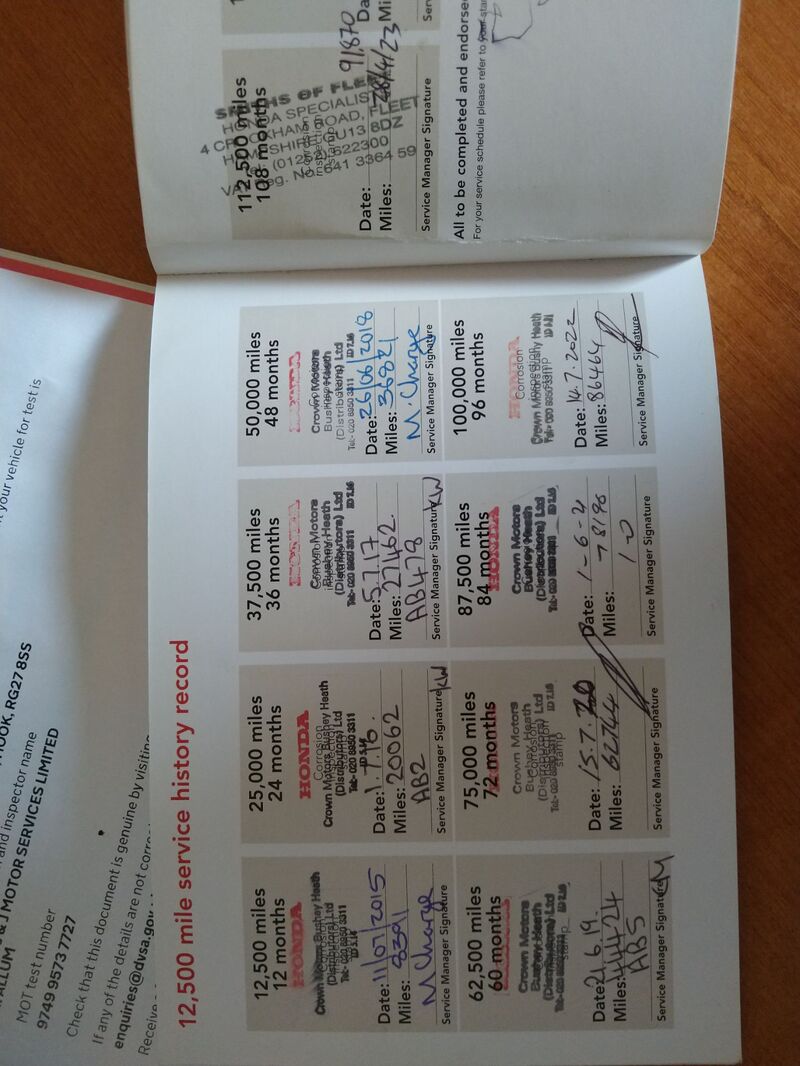 12,500 mile service history record
12,500 miles
12 months
HONDA
Crown Motors Bushey Heath
(Distributors) Ltd
Tel:- 020 8950 3311 ID 5.14
Date: 11/07/2015
Miles: 8391
M Charge
Service Manager Signature
25,000 miles
24 months
HONDA
Corrosion
Crown Motors Bushey Heath
(Distributors) Ltd
Tel:- 020 8950 3311
Date: 1.7.16.
Miles: 20062
AB2
Service Manager Signature KW
37,500 miles
36 months
HONDA
Crown Motors
Bushey Heath
(Distributors) Ltd
Tel:- 020 8950 3311 ID 7.16
Date: 5.7.17
Miles: 27462
AB478
Service Manager Signature KW
50,000 miles
48 months
Crown Motors
Bushey Heath
(Distributors) Ltd
Tel:- 020 8950 3311 ID 7.16
Date: 26/06/2018
Miles: 36821
M. Charge
Service Manager Signature
62,500 miles
60 months
Crown Motors
Bushey Heath
(Distributors) Ltd
Date: 21.6.19.
Miles: 44424
AB5
Service Manager Signature
75,000 miles
72 months
Crown Motors
Bushey Heath
(Distributors) Ltd
stamp
Date: 15.7.20
Miles: 62744
Service Manager Signature
87,500 miles
84 months
HONDA
Crown Motors
Bushey Heath
(Distributors) Ltd
Tel:- 020 8950 3311 ID 7.16
Date: 1-6-2
Miles: 78196
Service Manager Signature
100,000 miles
96 months
HONDA
Corrosion
Crown Motors Bushey Heath
Date: 14.7.2022
Miles: 86464
Service Manager Signature
112,500 miles
108 months
HONDA SPECIALIST
Date:
91,870
Miles: 28/4/23
Service Manager Signature
All to be completed and endorse
For your service schedule please refer to your
HOOK, RG27 8SS
and inspector name
J MOTOR SERVICES LIMITED
ALLUM
MOT test number
9749 9573 7727
Check that this document is genuine by visiting
If any of the details are not correc
enquiries@dvsa.gov
Receive
t your vehicle for test is